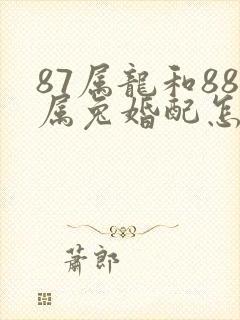 87属龍和88
属兔婚配怎
蕭郎